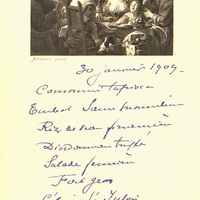 30 janvier 1909
Consommé tapioca
Turbot Sauce mousseline
Ris de veau financière
Dindonneau truffé
Salade
Foie gras